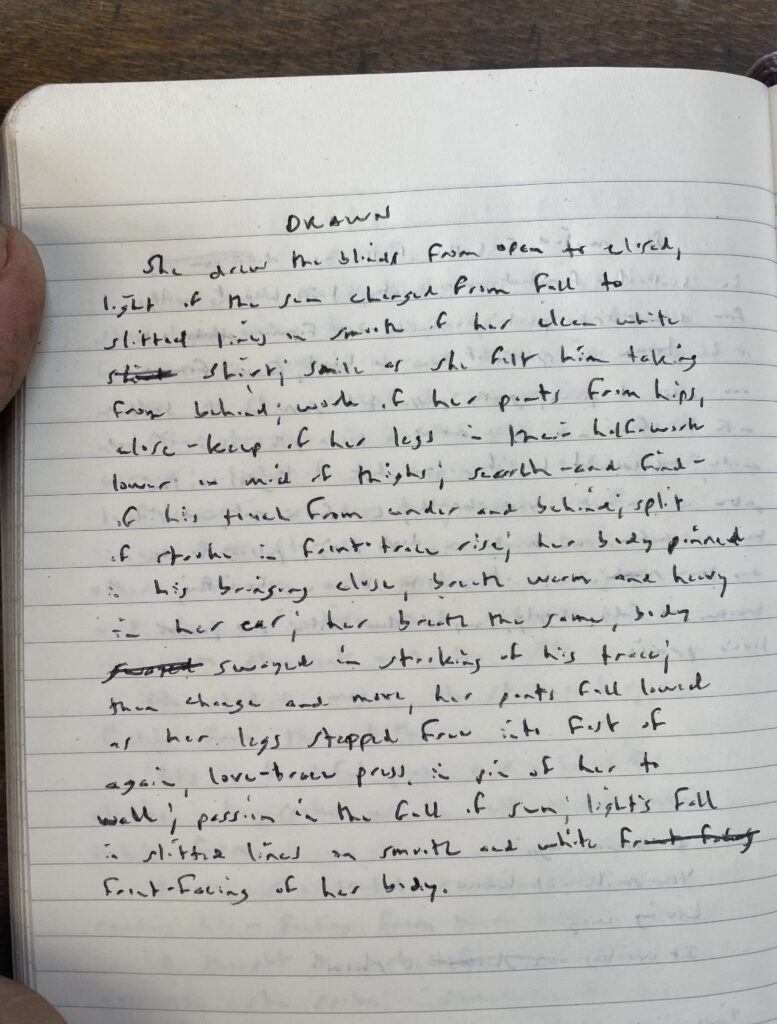 DRAWN
She drew the blinds from open to closed,
light of the sun changed from full to
slitted lines on smooth of her clean white
shirt; smile as she felt him taking
from behind; work of her pants from hips,
close-keep of her legs in their half-work
lower in mid of thighs; search-and find-
of his touch from under and behind; split
of stroke in front-trace rise; her body pinned
in his bringing close, breath warm and heavy
in her ear; her breath the same, body
swayed in stroking of his trace;
then change and more, her pants full lowered
as her legs stepped free into fast of
again, love-brace press in pin of her to
wall; passion in the fall of sun; light's fall
in slitted lines on smooth and white front facing
front-facing of her body.